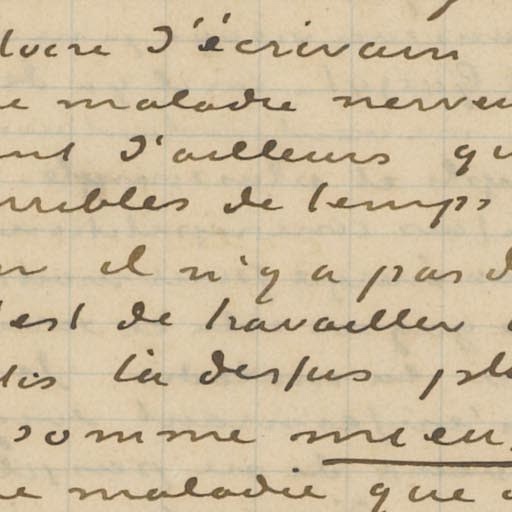 d'écrivain
maladie nerveu
d'ailleurs qu
rribles de temps
il n'y a pas d
est de travailler
là dessus pl
somme mieu
maladie que